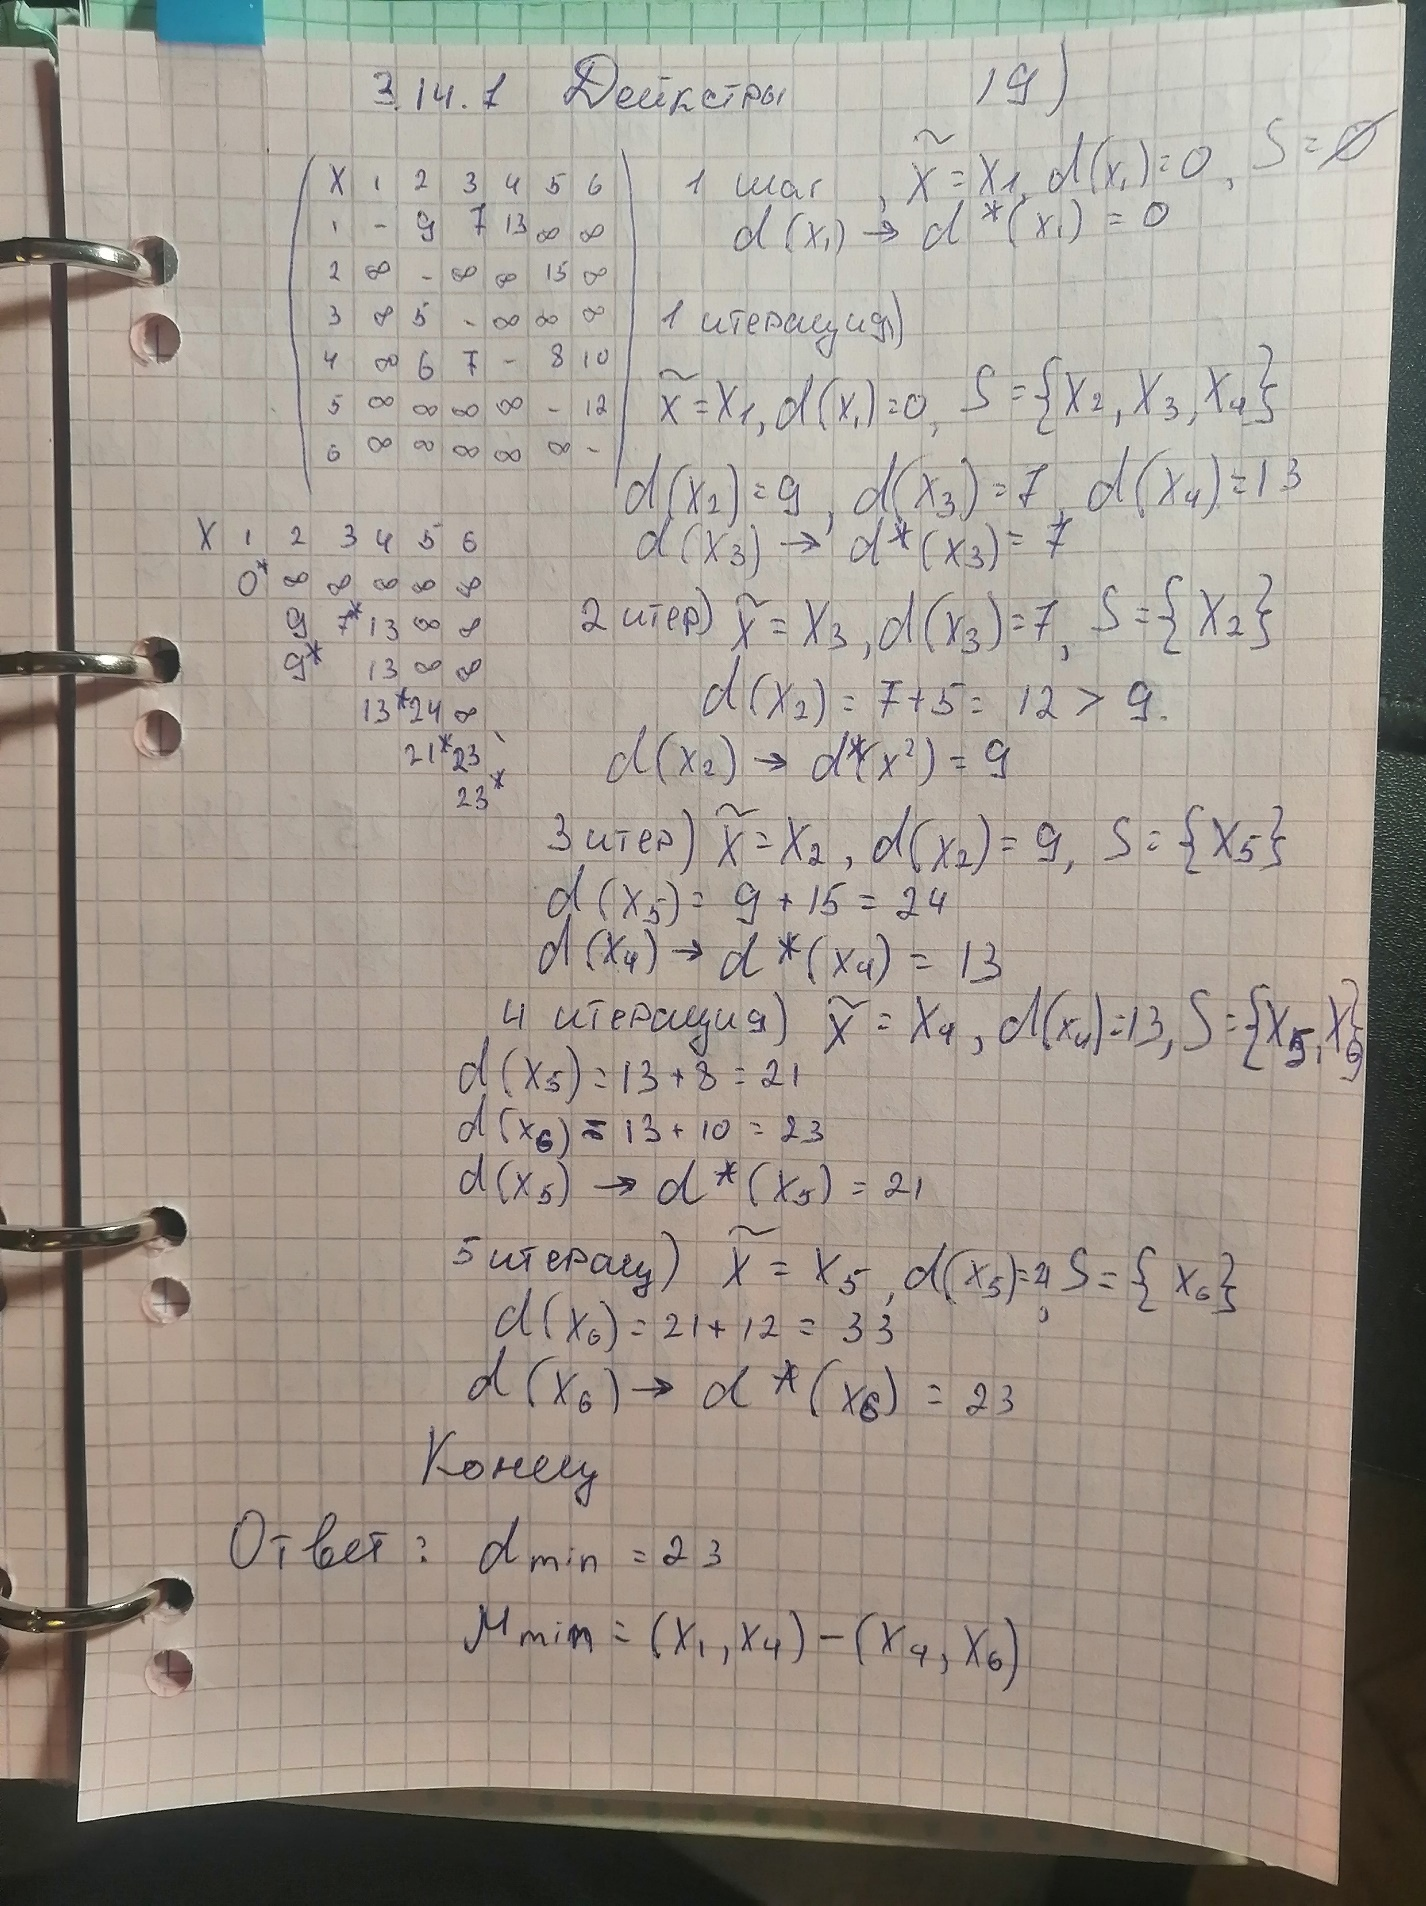 3.14.1 Дейкстры 19)
X 1 2 3 4 5 6
1 - 9 7 13 ∞ ∞
2 ∞ - ∞ ∞ 15 ∞
3 ∞ 5 - ∞ ∞ ∞
4 ∞ 6 7 - 8 10
5 ∞ ∞ ∞ ∞ - 12
6 ∞ ∞ ∞ ∞ ∞ -
X 1 2 3 4 5 6
0* ∞ ∞ ∞ ∞ ∞
9 7* 13 ∞ ∞
9* 13 ∞ ∞
13* 24 ∞
21* 23
23*
1 шаг, x̃ = x₁, d(x₁)=0, S=∅
d(x₁) → d*(x₁) = 0
1 итерация)
x̃ = x₁, d(x₁)=0, S={x₂, x₃, x₄}
d(x₂)=9, d(x₃)=7, d(x₄)=13
d(x₃) → d*(x₃) = 7
2 итер) x̃ = x₃, d(x₃)=7, S={x₂}
d(x₂) = 7+5 = 12 > 9.
d(x₂) → d*(x²) = 9
3 итер) x̃ = x₂, d(x₂) = 9, S={x₅}
d(x₅) = 9 + 15 = 24
d(x₄) → d*(x₄) = 13
4 итерация) x̃ = x₄, d(x₄)=13, S={x₅, x₆}
d(x₅) = 13+8 = 21
d(x₆) = 13+10 = 23
d(x₅) → d*(x₅) = 21
5 итерац) x̃ = x₅, d(x₅)=21, S={x₆}
d(x₆) = 21+12 = 33
d(x₆) → d*(x₆) = 23
Конец
Ответ: dmin = 23
μmin = (x₁, x₄) – (x₄, x₆)